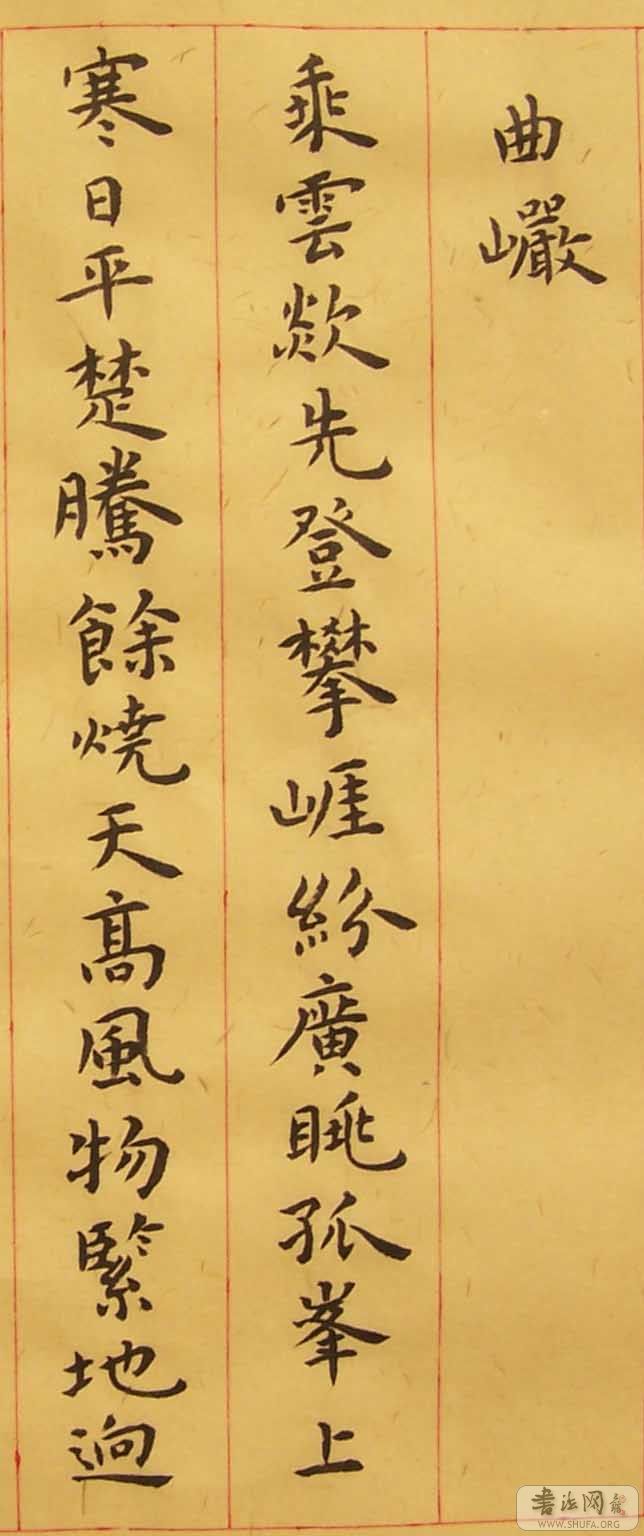 曲巗
乘雲欻先登攀崕紛廣眺孤峯上
寒日平楚騰餘燒天髙風物緊地逈
書法网
WWW.SHUFA.ORG